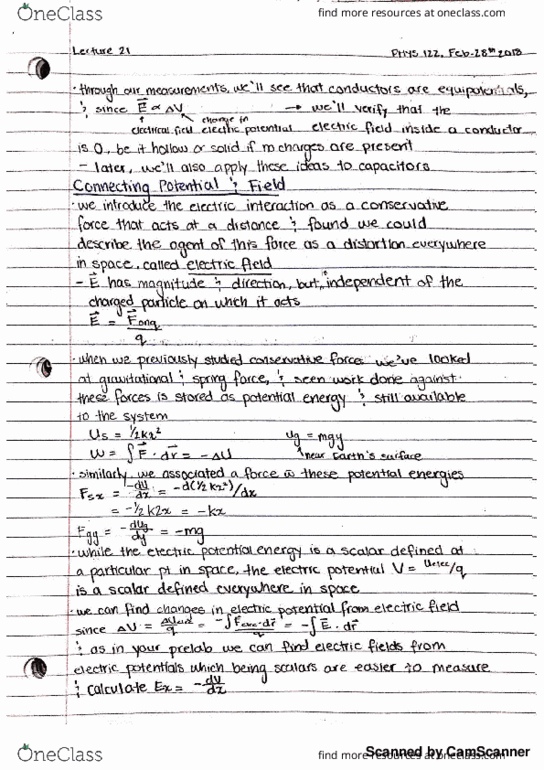 OneClass
find more resources at oneclass.com
Lecture 21
PHYS 122, Feb-28th 2018
· through our measurements, we'll see that conductors are equipotentials,
& since E⃗ ∝ ΔV → we'll verify that the
change in
electrical field electric potential electric field inside a conductor
is 0, be it hollow or solid if no charges are present
- later, we'll also apply these ideas to capacitors
Connecting Potential & Field
· we introduce the electric interaction as a conservative
force that acts at a distance & found we could
describe the agent of this force as a distortion everywhere
in space, called electric field
- E⃗ has magnitude & direction, but, independent of the
charged particle on which it acts
E⃗ = F⃗onq
q
· when we previously studied conservative forces we've looked
at gravitational & spring force, & seen work done against
these forces is stored as potential energy & still available
to the system
Us = ½kx² ug = mgy
W = ∫F⃗ · dr⃗ = -ΔU near Earth's surface
· similarly, we associated a force w these potential energies
Fsx = -dU/dx = -d(½kx²)/dx
= -½k2x = -kx
Fgy = -dUg/dy = -mg
· while the electric potential energy is a scalar defined at
a particular pt in space, the electric potential V = Uelec/q
is a scalar defined everywhere in space
· we can find changes in electric potential from electric field
since ΔV = ΔUelec/q = -∫Felec·dr⃗/q = -∫E⃗ · dr⃗
& as in your prelab we can find electric fields from
electric potentials which being scalars are easier to measure
& calculate Ex = -dV/dx
Scanned by CamScanner
OneClass
find more resources at oneclass.com